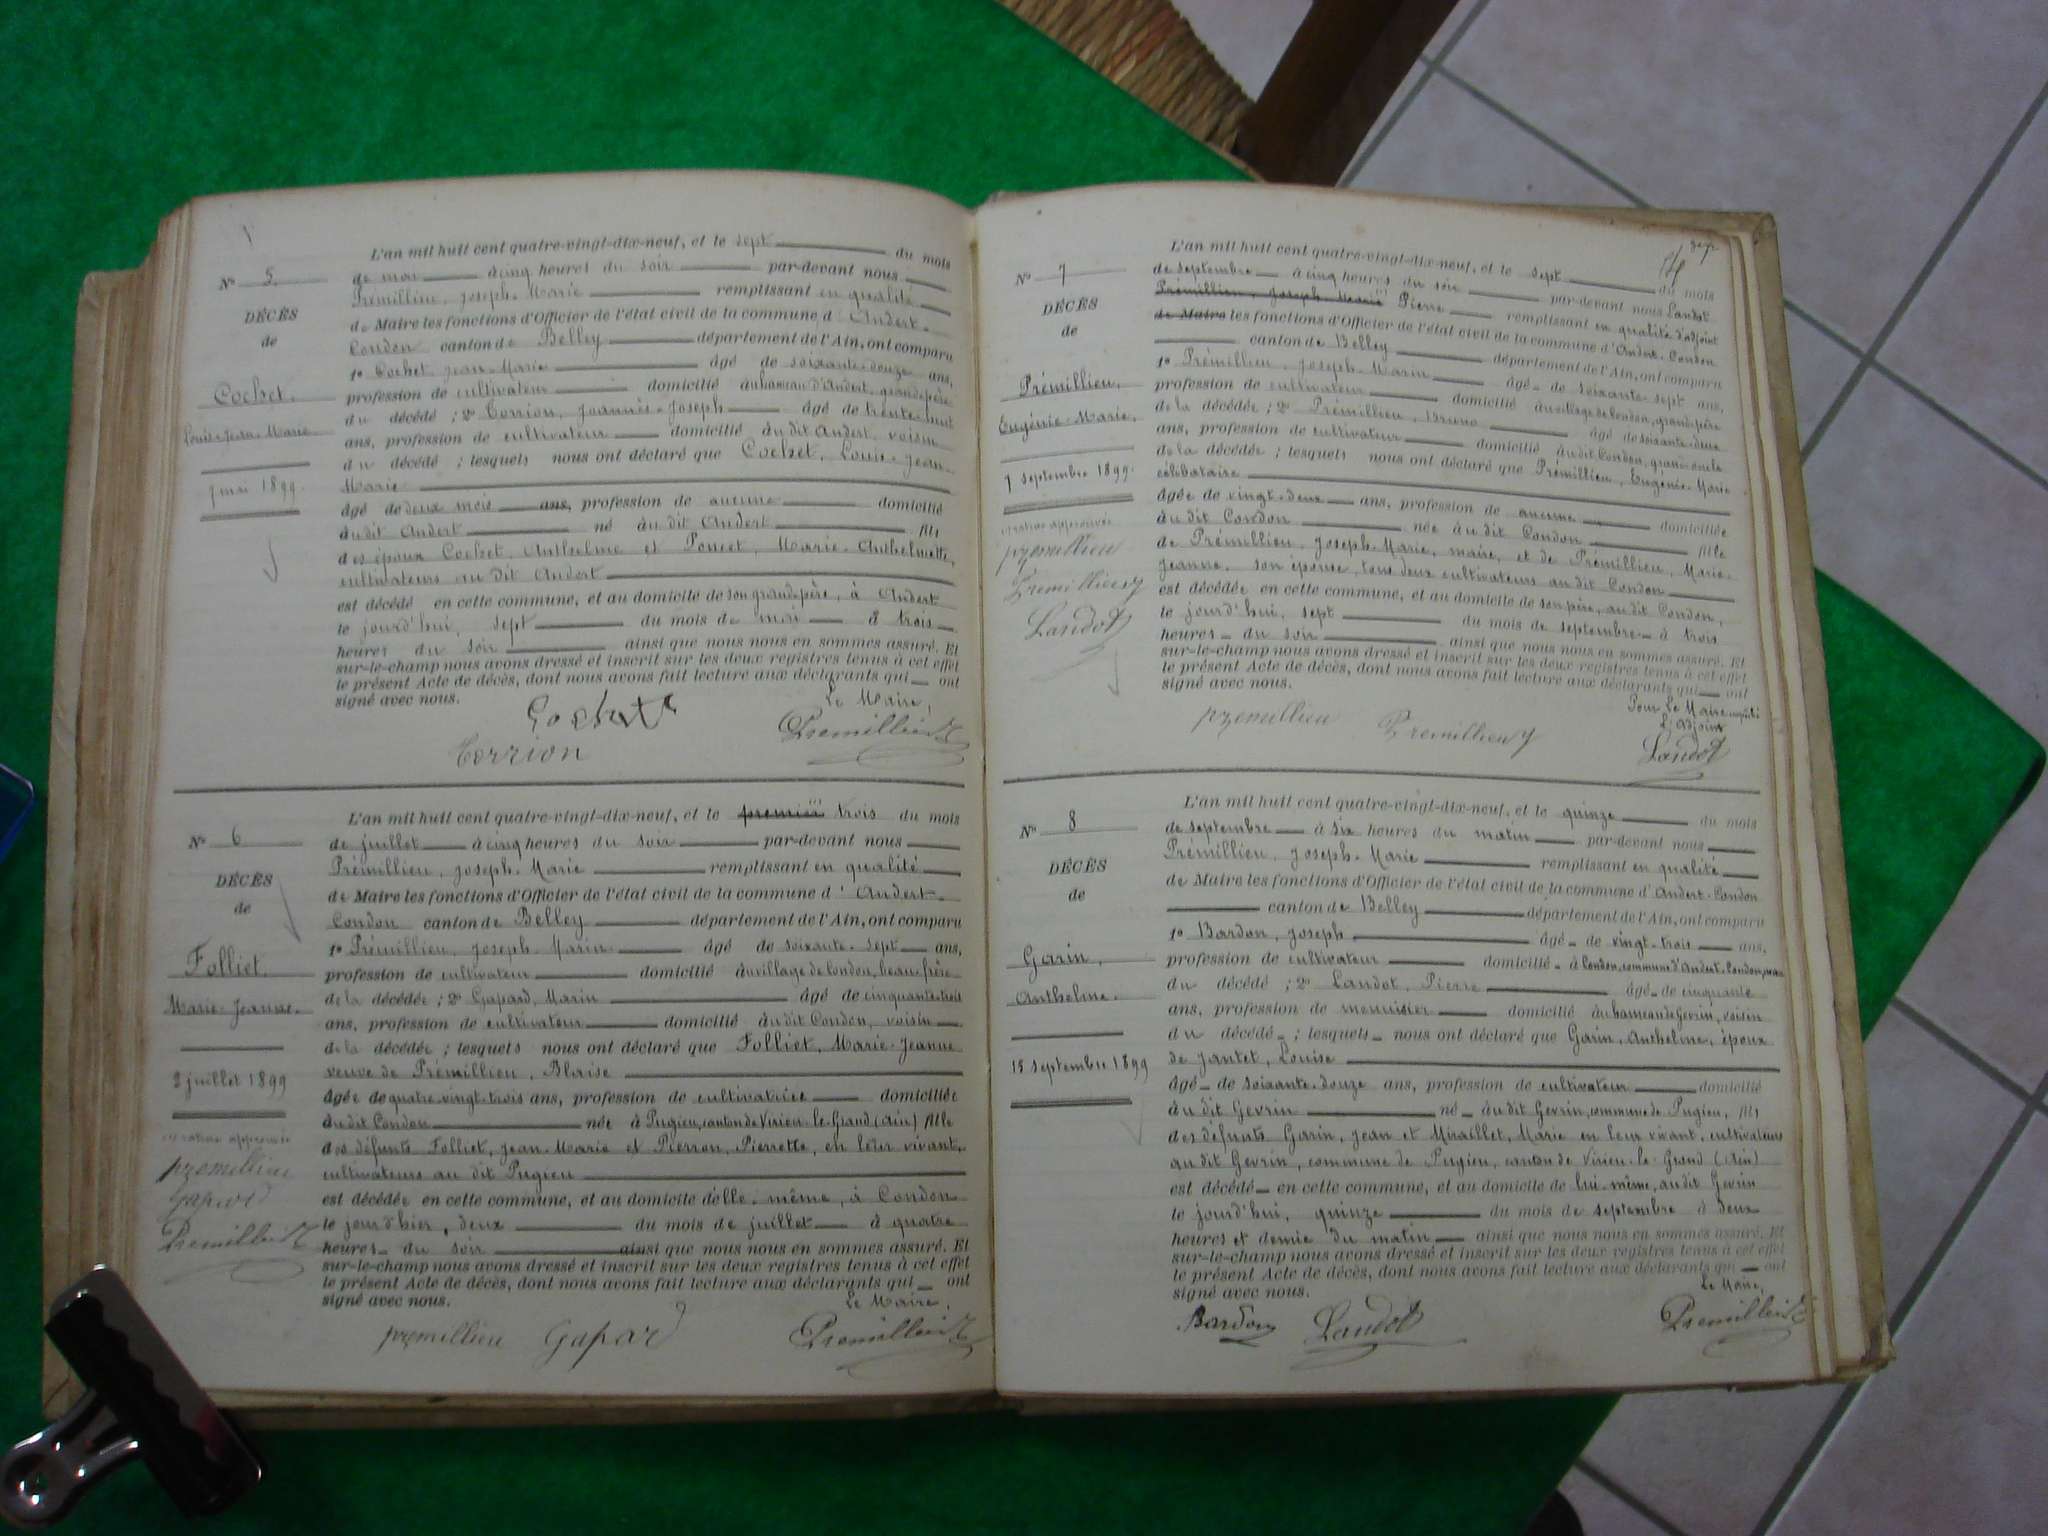 L'an mil huit cent quatre-vingt-dix-neuf, et le sept du mois
N° 5 de mai à cinq heures du soir par-devant nous
Prémillieu, Joseph-Marie remplissant en qualité
DÉCÈS
de Maire les fonctions d'Officier de l'état civil de la commune d'Andert-
de
Condon canton de Belley département de l'Ain, ont comparu
1° Cochet, Jean-Marie âgé de soixante-douze ans,
Cochet,
profession de cultivateur domicilié au hameau d'Andert, grand-père
du décédé ; 2° Corrion, Joannès-Joseph âgé de trente-huit
Louis-Jean-Marie
ans, profession de cultivateur domicilié audit Andert, voisin
du décédé ; lesquels nous ont déclaré que Cochet, Louis-Jean-
7 mai 1899.
Marie
âgé de deux mois ans, profession de aucune domicilié
audit Andert né audit Andert fils
des époux Cochet, Anthelme et Poncet, Marie-Anthelmette,
cultivateurs au dit Andert
est décédé en cette commune, et au domicile de son grand-père, à Andert
le jourd'hui, sept du mois de mai à trois
heures du soir ainsi que nous nous en sommes assuré. Et
sur-le-champ nous avons dressé et inscrit sur les deux registres tenus à cet effet
le présent Acte de décès, dont nous avons fait lecture aux déclarants qui ont
signé avec nous.
Le Maire,
Cochet
Corrion
Premillieu
L'an mil huit cent quatre-vingt-dix-neuf, et le premier trois du mois
N° 6 de juillet à cinq heures du soir par-devant nous
Prémillieu, Joseph-Marie remplissant en qualité
DÉCÈS
de Maire les fonctions d'Officier de l'état civil de la commune d'Andert-
de
Condon canton de Belley département de l'Ain, ont comparu
1° Prémillieu, Joseph-Marin âgé de soixante-sept ans,
Folliet,
profession de cultivateur domicilié au village de Condon, beau-frère
de la décédée ; 2° Gapard, Marin âgé de cinquante-trois
Marie-Jeanne.
ans, profession de cultivateur domicilié audit Condon, voisin
de la décédée ; lesquels nous ont déclaré que Folliet, Marie-Jeanne
veuve de Prémillieu, Blaise
2 juillet 1899
âgée de quatre-vingt-trois ans, profession de cultivatrice domiciliée
au dit Condon née à Pugieu, canton de Virieu-le-Grand (Ain) fille
des défunts Folliet, Jean-Marie et Pierron, Pierrette, en leur vivant,
cultivateurs au dit Pugieu
approuvée
premillieu
Gapard
Premillieu
est décédée en cette commune, et au domicile d'elle-même, à Condon
le jour d'hier, deux du mois de juillet à quatre
heures du soir ainsi que nous nous en sommes assuré. Et
sur-le-champ nous avons dressé et inscrit sur les deux registres tenus à cet effet
le présent Acte de décès, dont nous avons fait lecture aux déclarants qui ont
signé avec nous.
Le Maire,
premillieu Gapard Premillieu
L'an mil huit cent quatre-vingt-dix-neuf, et le sept du mois
N° 7 de septembre à cinq heures du soir par-devant nous Landot
Prémillieu, Joseph-Marie Pierre remplissant en qualité d'adjoint
DÉCÈS
de Maire les fonctions d'Officier de l'état civil de la commune d'Andert-Condon
de
canton de Belley département de l'Ain, ont comparu
1° Prémillieu, Joseph-Marin âgé de soixante-sept ans,
Prémillieu,
profession de cultivateur domicilié au village de Condon, grand-père
de la décédée ; 2° Prémillieu, Bruno âgé de soixante-deux
Eugénie-Marie.
ans, profession de cultivateur domicilié audit Condon, grand-oncle
de la décédée ; lesquels nous ont déclaré que Prémillieu, Eugénie-Marie
7 septembre 1899.
célibataire
âgée de vingt-deux ans, profession de aucune domiciliée
au dit Condon née au dit Condon fille
approuvée
premillieu
Premillieu
Landot
de Prémillieu, Joseph-Marie, maire, et de Prémillieu, Marie-
Jeanne, son épouse, tous deux cultivateurs au dit Condon
est décédée en cette commune, et au domicile de son père, au dit Condon,
le jourd'hui, sept du mois de septembre à trois
heures du soir ainsi que nous nous en sommes assuré. Et
sur-le-champ nous avons dressé et inscrit sur les deux registres tenus à cet effet
le présent Acte de décès, dont nous avons fait lecture aux déclarants qui ont
signé avec nous.
Pour le Maire empêché
L'adjoint
premillieu Premillieu Landot
L'an mil huit cent quatre-vingt-dix-neuf, et le quinze du mois
N° 8 de septembre à six heures du matin par-devant nous
Prémillieu, Joseph-Marie remplissant en qualité
DÉCÈS
de Maire les fonctions d'Officier de l'état civil de la commune d'Andert-Condon
de
canton de Belley département de l'Ain, ont comparu
1° Bardon, Joseph âgé de vingt-trois ans,
Garin,
profession de cultivateur domicilié à Condon, commune d'Andert-Condon,
du décédé ; 2° Landot, Pierre âgé de cinquante
Anthelme.
ans, profession de menuisier domicilié au hameau de Gevrin, voisin
du décédé ; lesquels nous ont déclaré que Garin, Anthelme, époux
15 septembre 1899
de Jantet, Louise
âgé de soixante-douze ans, profession de cultivateur domicilié
au dit Gevrin né au dit Gevrin, commune de Pugieu, fils
des défunts Garin, Jean et Miraillet, Marie en leur vivant, cultivateurs
au dit Gevrin, commune de Pugieu, canton de Virieu-le-Grand (Ain)
est décédé en cette commune, et au domicile de lui-même, au dit Gevrin
le jourd'hui, quinze du mois de septembre à deux
heures et demie du matin ainsi que nous nous en sommes assuré. Et
sur-le-champ nous avons dressé et inscrit sur les deux registres tenus à cet effet
le présent Acte de décès, dont nous avons fait lecture aux déclarants qui ont
signé avec nous.
Le Maire,
Bardon Landot Premillieu